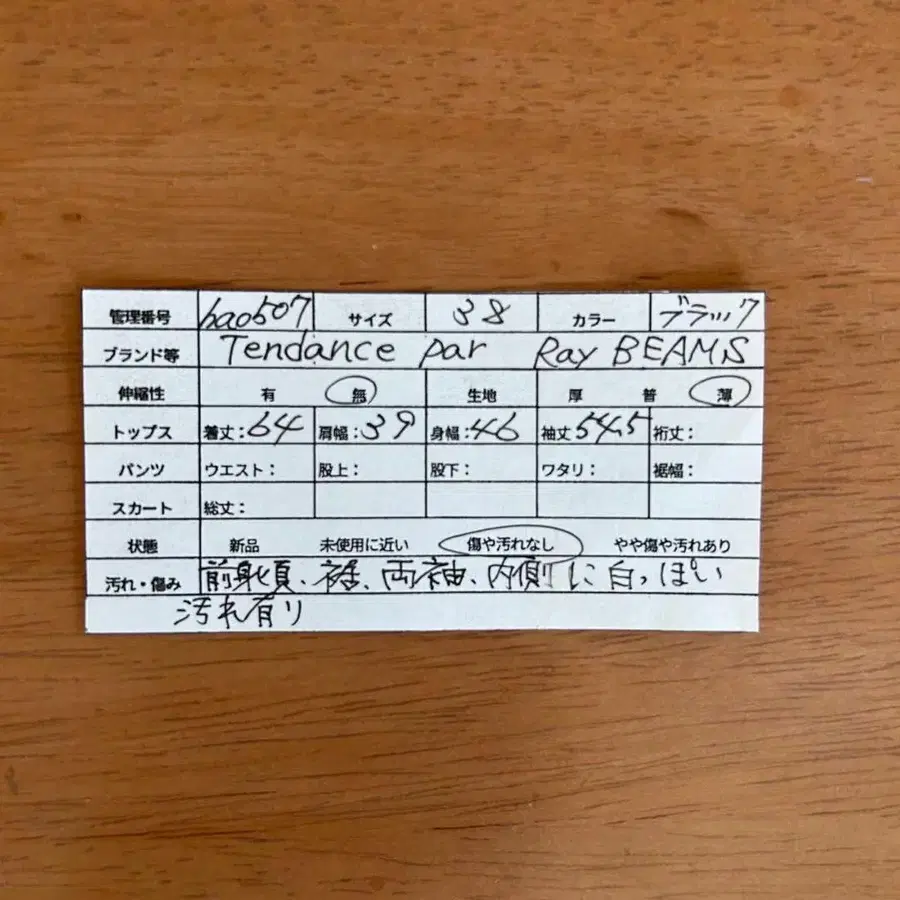 管理番号 hao507 サイズ 38 カラー ブラック
ブランド等 Tendance par Ray BEAMS
伸縮性 有 無 生地 厚 普 薄
トップス 着丈:64 肩幅:39 身幅:46 袖丈54.5 裄丈:
パンツ ウエスト: 股上: 股下: ワタリ: 裾幅:
スカート 総丈:
状態 新品 未使用に近い 傷や汚れなし やや傷や汚れあり
汚れ・傷み 前身頃、裾、両袖、内側に白っぽい
汚れ有り